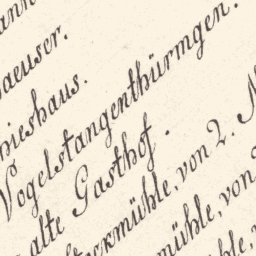 aeuser.
ieshaus.
Vogelstangenthürmgen.
alte Gasthof.
ckmühle, von 2. N
mühle, von